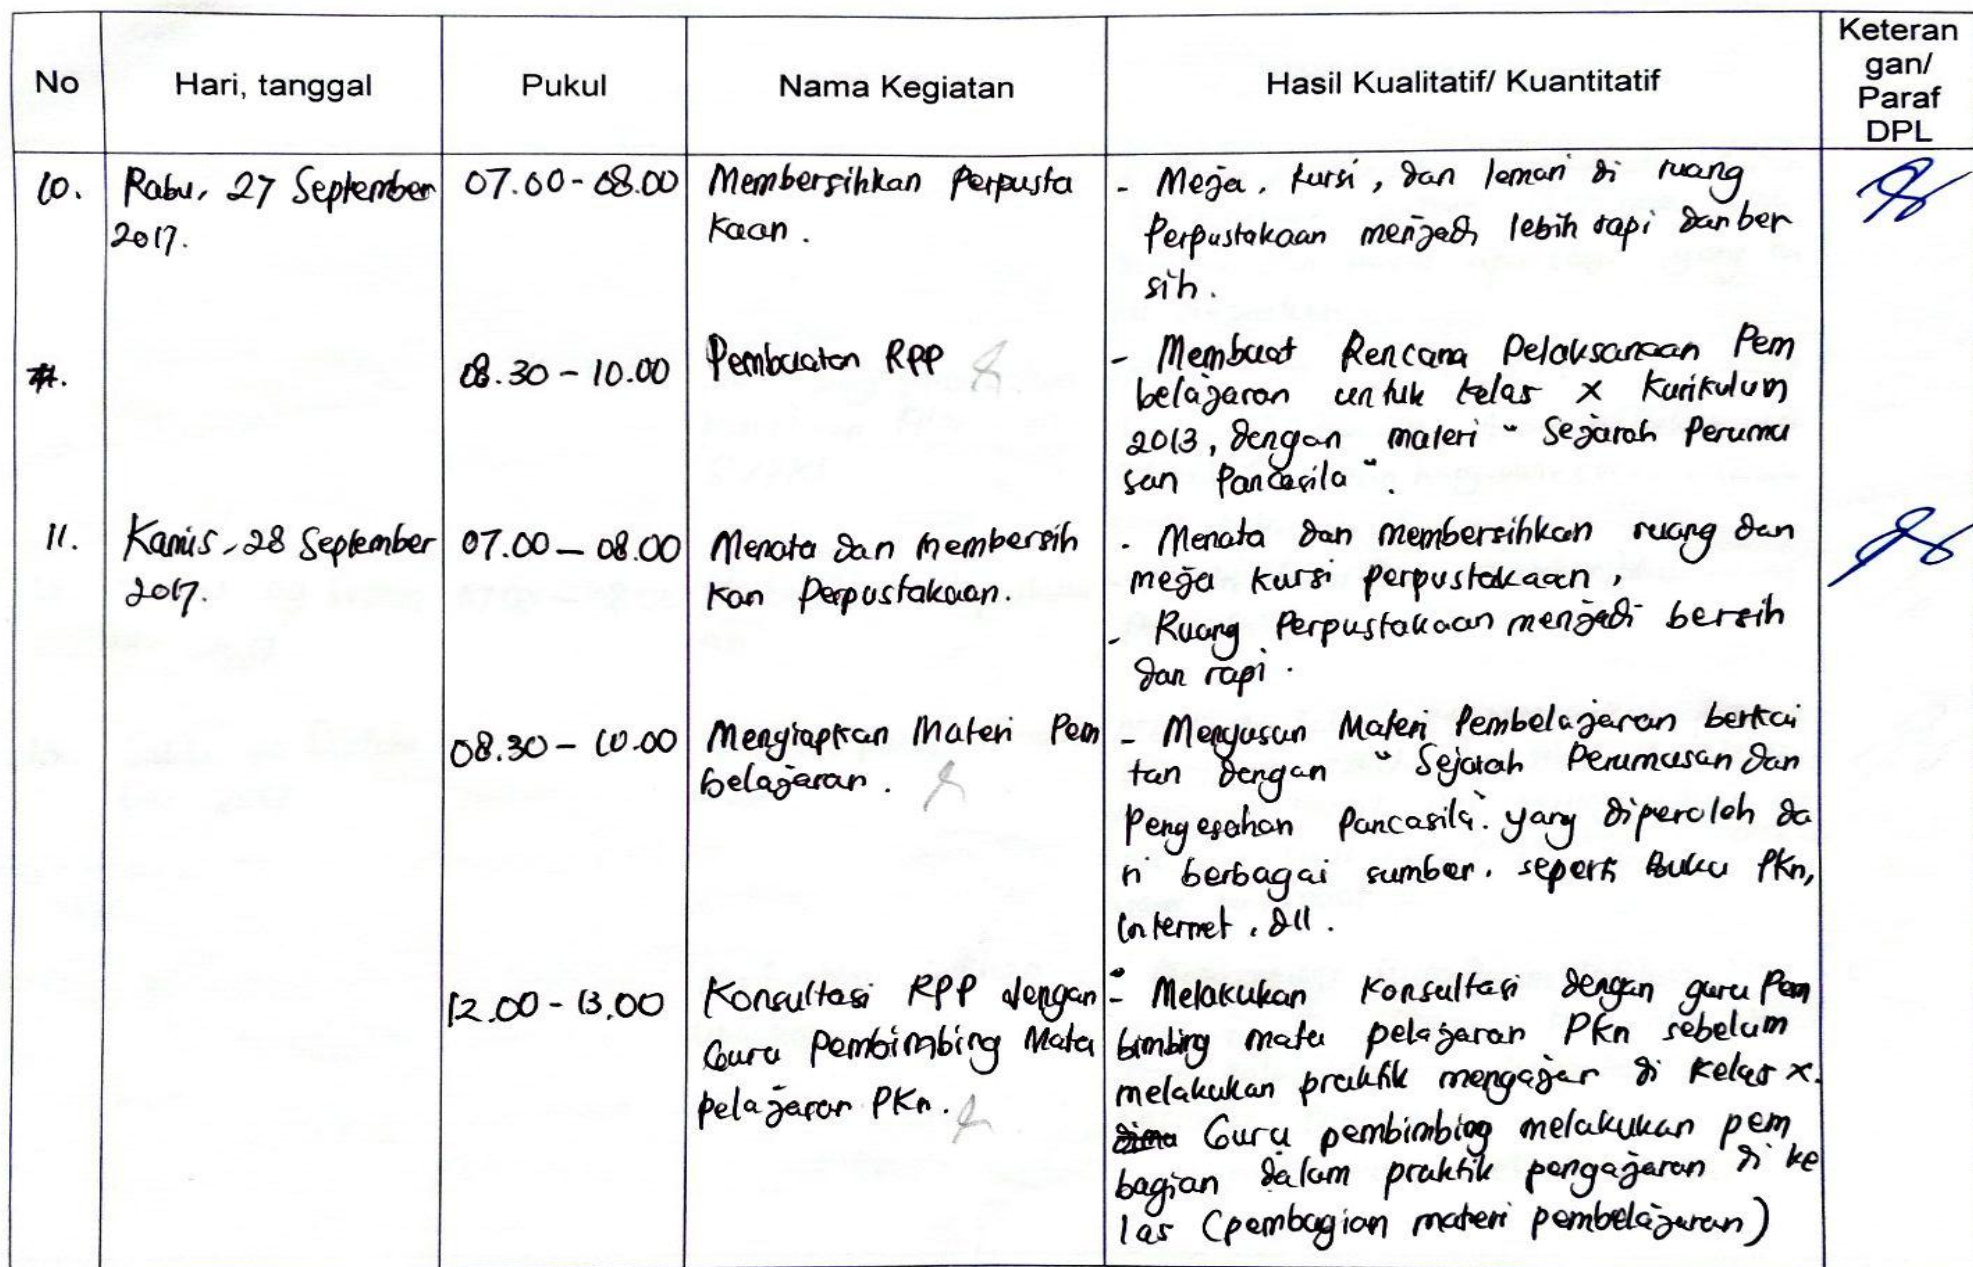 No Hari, tanggal Pukul Nama Kegiatan Hasil Kualitatif/ Kuantitatif Keteran
gan/
Paraf
DPL
10. Rabu, 27 September 07.00 - 08.00 Membersihkan Perpusta - Meja, kursi, dan lemari di ruang
2017. kaan. Perpustakaan menjadi lebih rapi dan ber
sih.
08.30 - 10.00 Pembuatan RPP - Membuat Rencana Pelaksanaan Pem
belajaran untuk kelas X Kurikulum
2013, dengan materi "Sejarah Perumu
san Pancasila".
11. Kamis, 28 September 07.00 - 08.00 Menata dan membersih - Menata dan membersihkan ruang dan
2017. kan Perpustakaan. meja kursi perpustakaan,
- Ruang Perpustakaan menjadi bersih
dan rapi.
08.30 - 10.00 Menyiapkan Materi Pem - Menyusun Materi Pembelajaran berkai
belajaran. tan dengan "Sejarah Perumusan dan
Pengesahan Pancasila". yang diperoleh da
ri berbagai sumber. seperti Buku PKn,
Internet, dll.
12.00 - 13.00 Konsultasi RPP dengan - Melakukan Konsultasi dengan guru Pem
Guru Pembimbing Mata bimbing mata pelajaran PKn sebelum
pelajaran PKn. melakukan praktik mengajar di kelas X.
Guru pembimbing melakukan pem
bagian dalam praktik pengajaran di ke
las (pembagian materi pembelajaran)